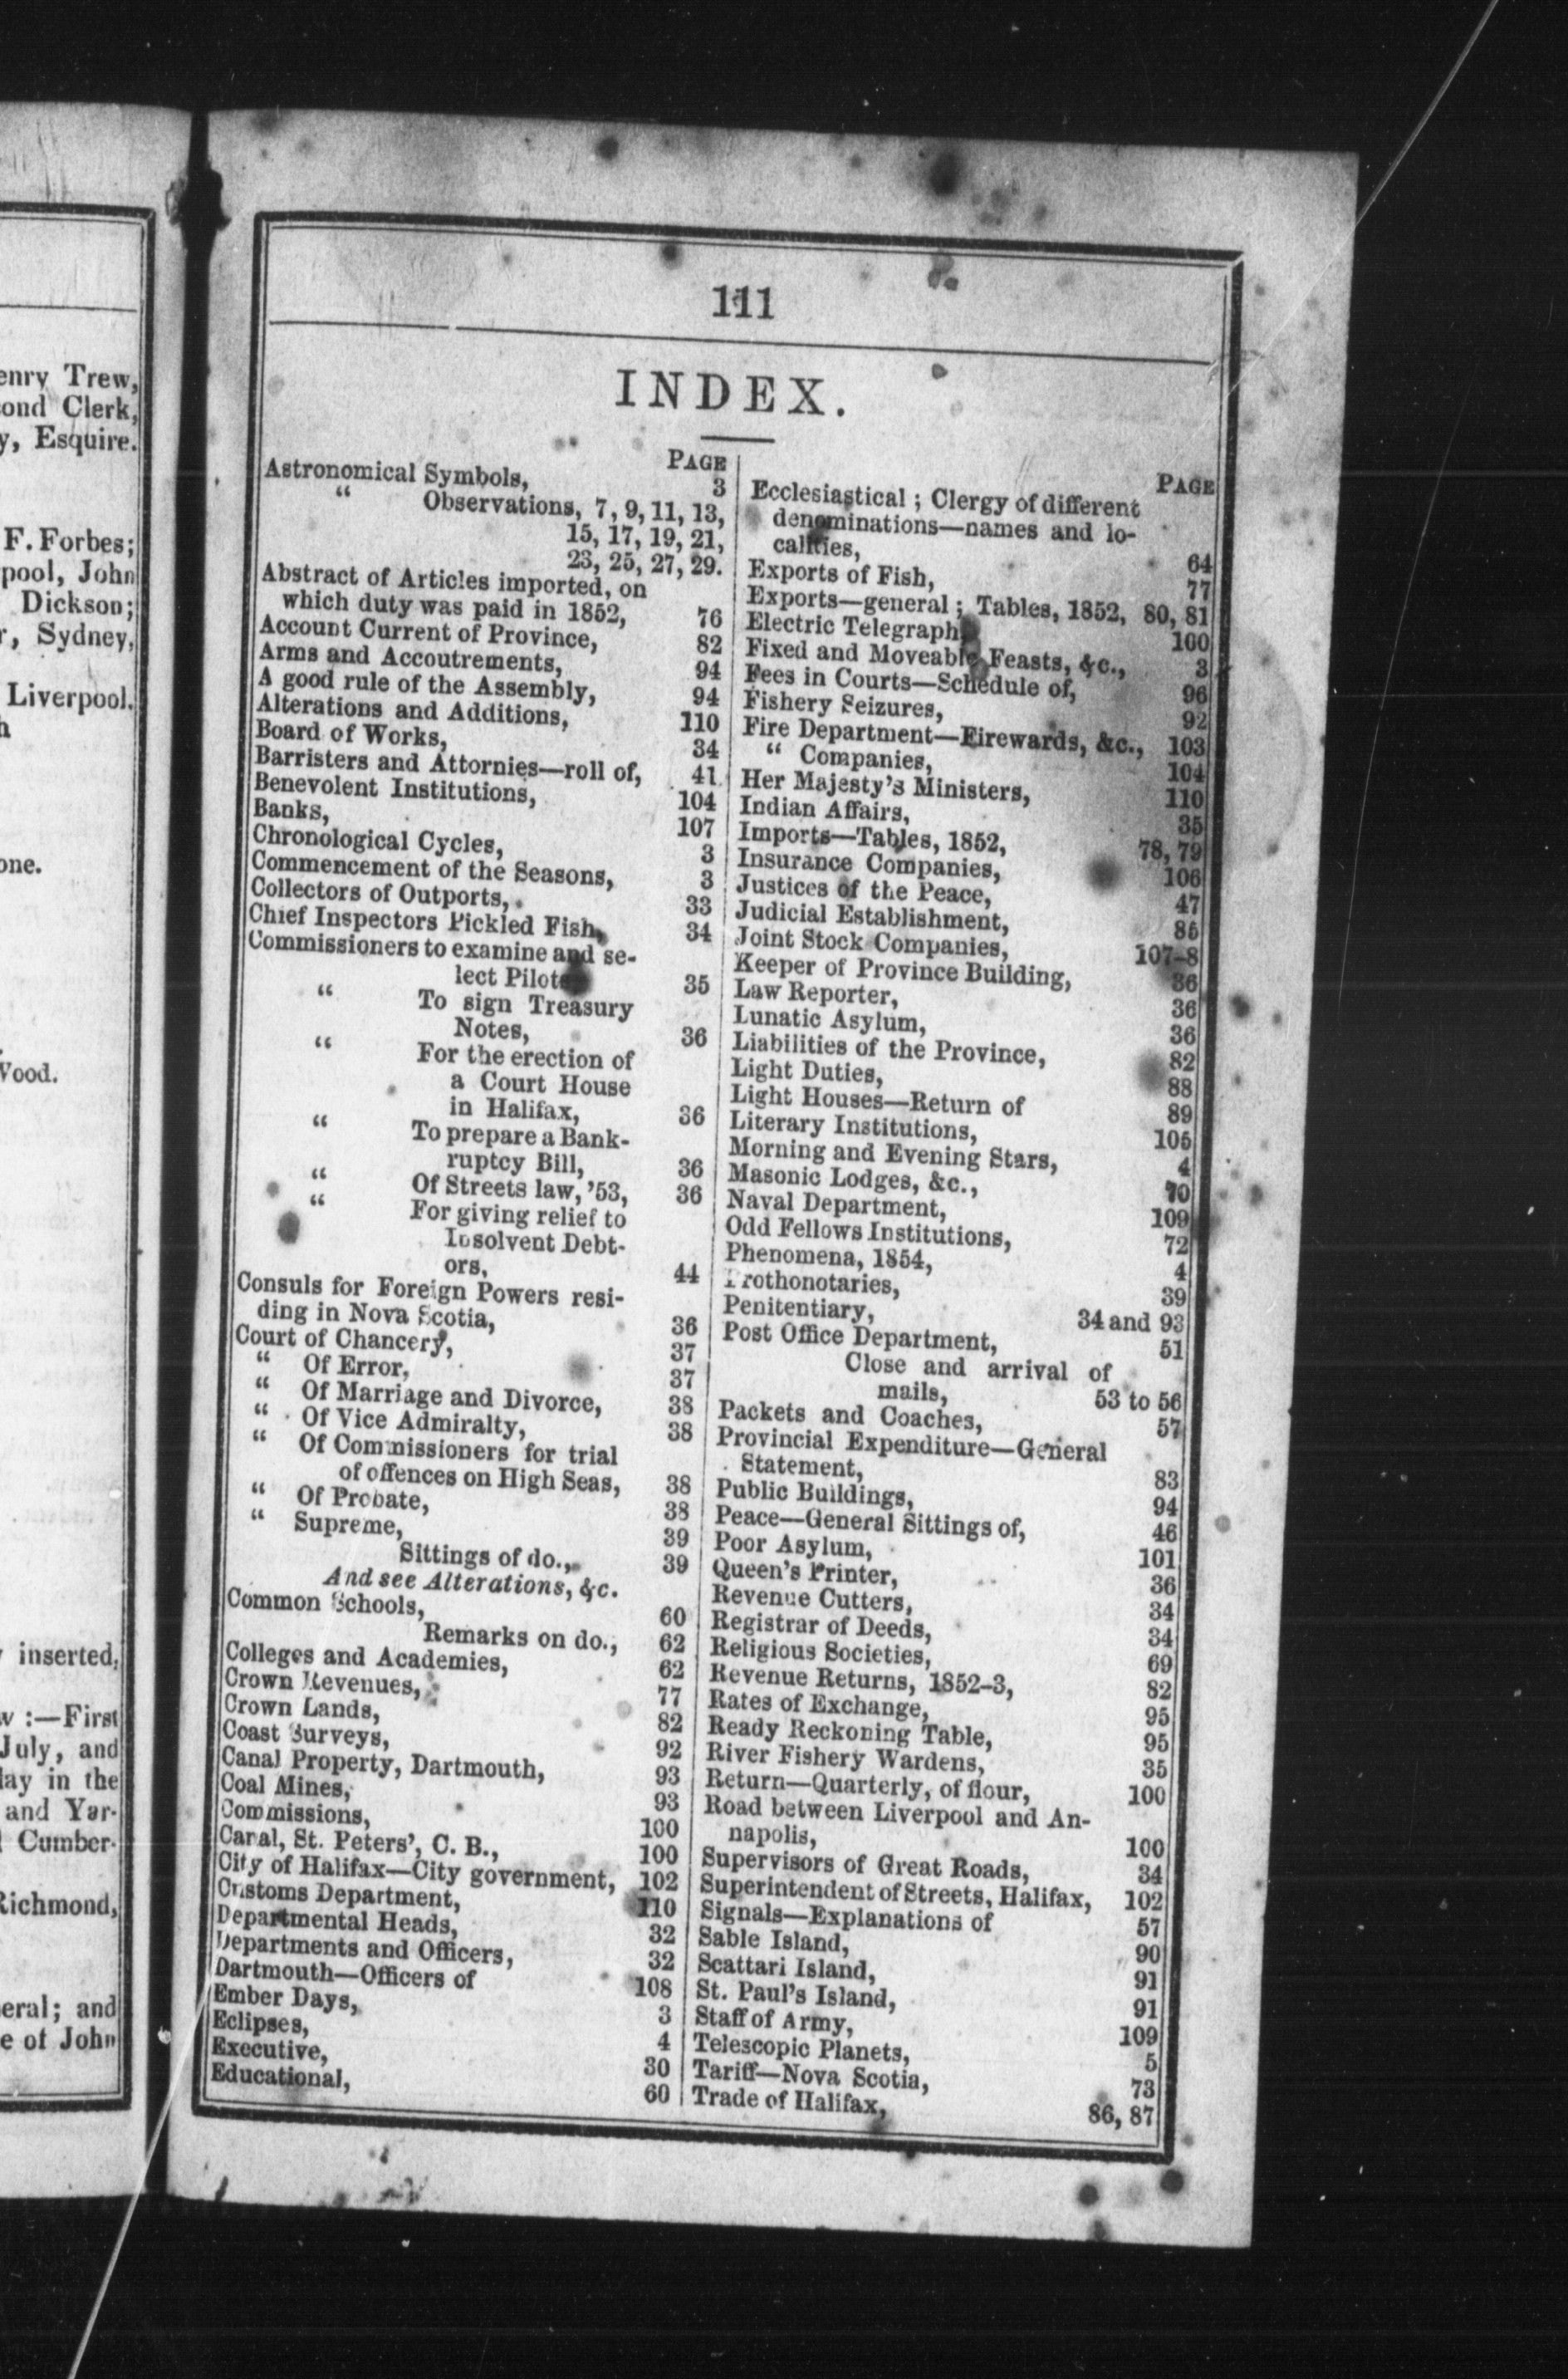 enry Trew,
ond Clerk,
y, Esquire.
F. Forbes;
pool, John
Dickson;
r, Sydney,
Liverpool.
one.
Wood.
inserted,
w :—First
July, and
lay in the
and Yar-
Cumber-
Richmond,
eral; and
e of John
111
INDEX.
PAGE
Astronomical Symbols, 3
“ Observations, 7, 9, 11, 13,
15, 17, 19, 21,
23, 25, 27, 29.
Abstract of Articles imported, on
which duty was paid in 1852, 76
Account Current of Province, 82
Arms and Accoutrements, 94
A good rule of the Assembly, 94
Alterations and Additions, 110
Board of Works, 34
Barristers and Attornies—roll of, 41
Benevolent Institutions, 104
Banks, 107
Chronological Cycles, 3
Commencement of the Seasons, 3
Collectors of Outports, 33
Chief Inspectors Pickled Fish, 34
Commissioners to examine and se-
lect Pilots 35
“ To sign Treasury
Notes, 36
“ For the erection of
a Court House
in Halifax, 36
“ To prepare a Bank-
ruptcy Bill, 36
“ Of Streets law, ’53, 36
“ For giving relief to
Insolvent Debt-
ors, 44
Consuls for Foreign Powers resi-
ding in Nova Scotia, 36
Court of Chancery, 37
“ Of Error, 37
“ Of Marriage and Divorce, 38
“ Of Vice Admiralty, 38
“ Of Commissioners for trial
of offences on High Seas, 38
“ Of Probate, 38
“ Supreme, 39
Sittings of do., 39
And see Alterations, &c.
Common Schools, 60
Remarks on do., 62
Colleges and Academies, 62
Crown Revenues, 77
Crown Lands, 82
Coast Surveys, 92
Canal Property, Dartmouth, 93
Coal Mines, 93
Commissions, 100
Canal, St. Peters’, C. B., 100
City of Halifax—City government, 102
Customs Department, 110
Departmental Heads, 32
Departments and Officers, 32
Dartmouth—Officers of 108
Ember Days, 3
Eclipses, 4
Executive, 30
Educational, 60
PAGE
Ecclesiastical ; Clergy of different
denominations—names and lo-
calities, 64
Exports of Fish, 77
Exports—general ; Tables, 1852, 80, 81
Electric Telegraph 100
Fixed and Moveable Feasts, &c., 3
Fees in Courts—Schedule of, 96
Fishery Seizures, 92
Fire Department—Firewards, &c., 103
“ Companies, 104
Her Majesty’s Ministers, 110
Indian Affairs, 35
Imports—Tables, 1852, 78, 79
Insurance Companies, 106
Justices of the Peace, 47
Judicial Establishment, 85
Joint Stock Companies, 107-8
Keeper of Province Building, 36
Law Reporter, 36
Lunatic Asylum, 36
Liabilities of the Province, 82
Light Duties, 88
Light Houses—Return of 89
Literary Institutions, 105
Morning and Evening Stars, 4
Masonic Lodges, &c., 70
Naval Department, 109
Odd Fellows Institutions, 72
Phenomena, 1854, 4
Prothonotaries, 39
Penitentiary, 34 and 93
Post Office Department, 51
Close and arrival of
mails, 53 to 56
Packets and Coaches, 57
Provincial Expenditure—General
Statement, 83
Public Buildings, 94
Peace—General Sittings of, 46
Poor Asylum, 101
Queen’s Printer, 36
Revenue Cutters, 34
Registrar of Deeds, 34
Religious Societies, 69
Revenue Returns, 1852-3, 82
Rates of Exchange, 95
Ready Reckoning Table, 95
River Fishery Wardens, 35
Return—Quarterly, of flour, 100
Road between Liverpool and An-
napolis, 100
Supervisors of Great Roads, 34
Superintendent of Streets, Halifax, 102
Signals—Explanations of 57
Sable Island, 90
Scattari Island, 91
St. Paul’s Island, 91
Staff of Army, 109
Telescopic Planets, 5
Tariff—Nova Scotia, 73
Trade of Halifax, 86, 87